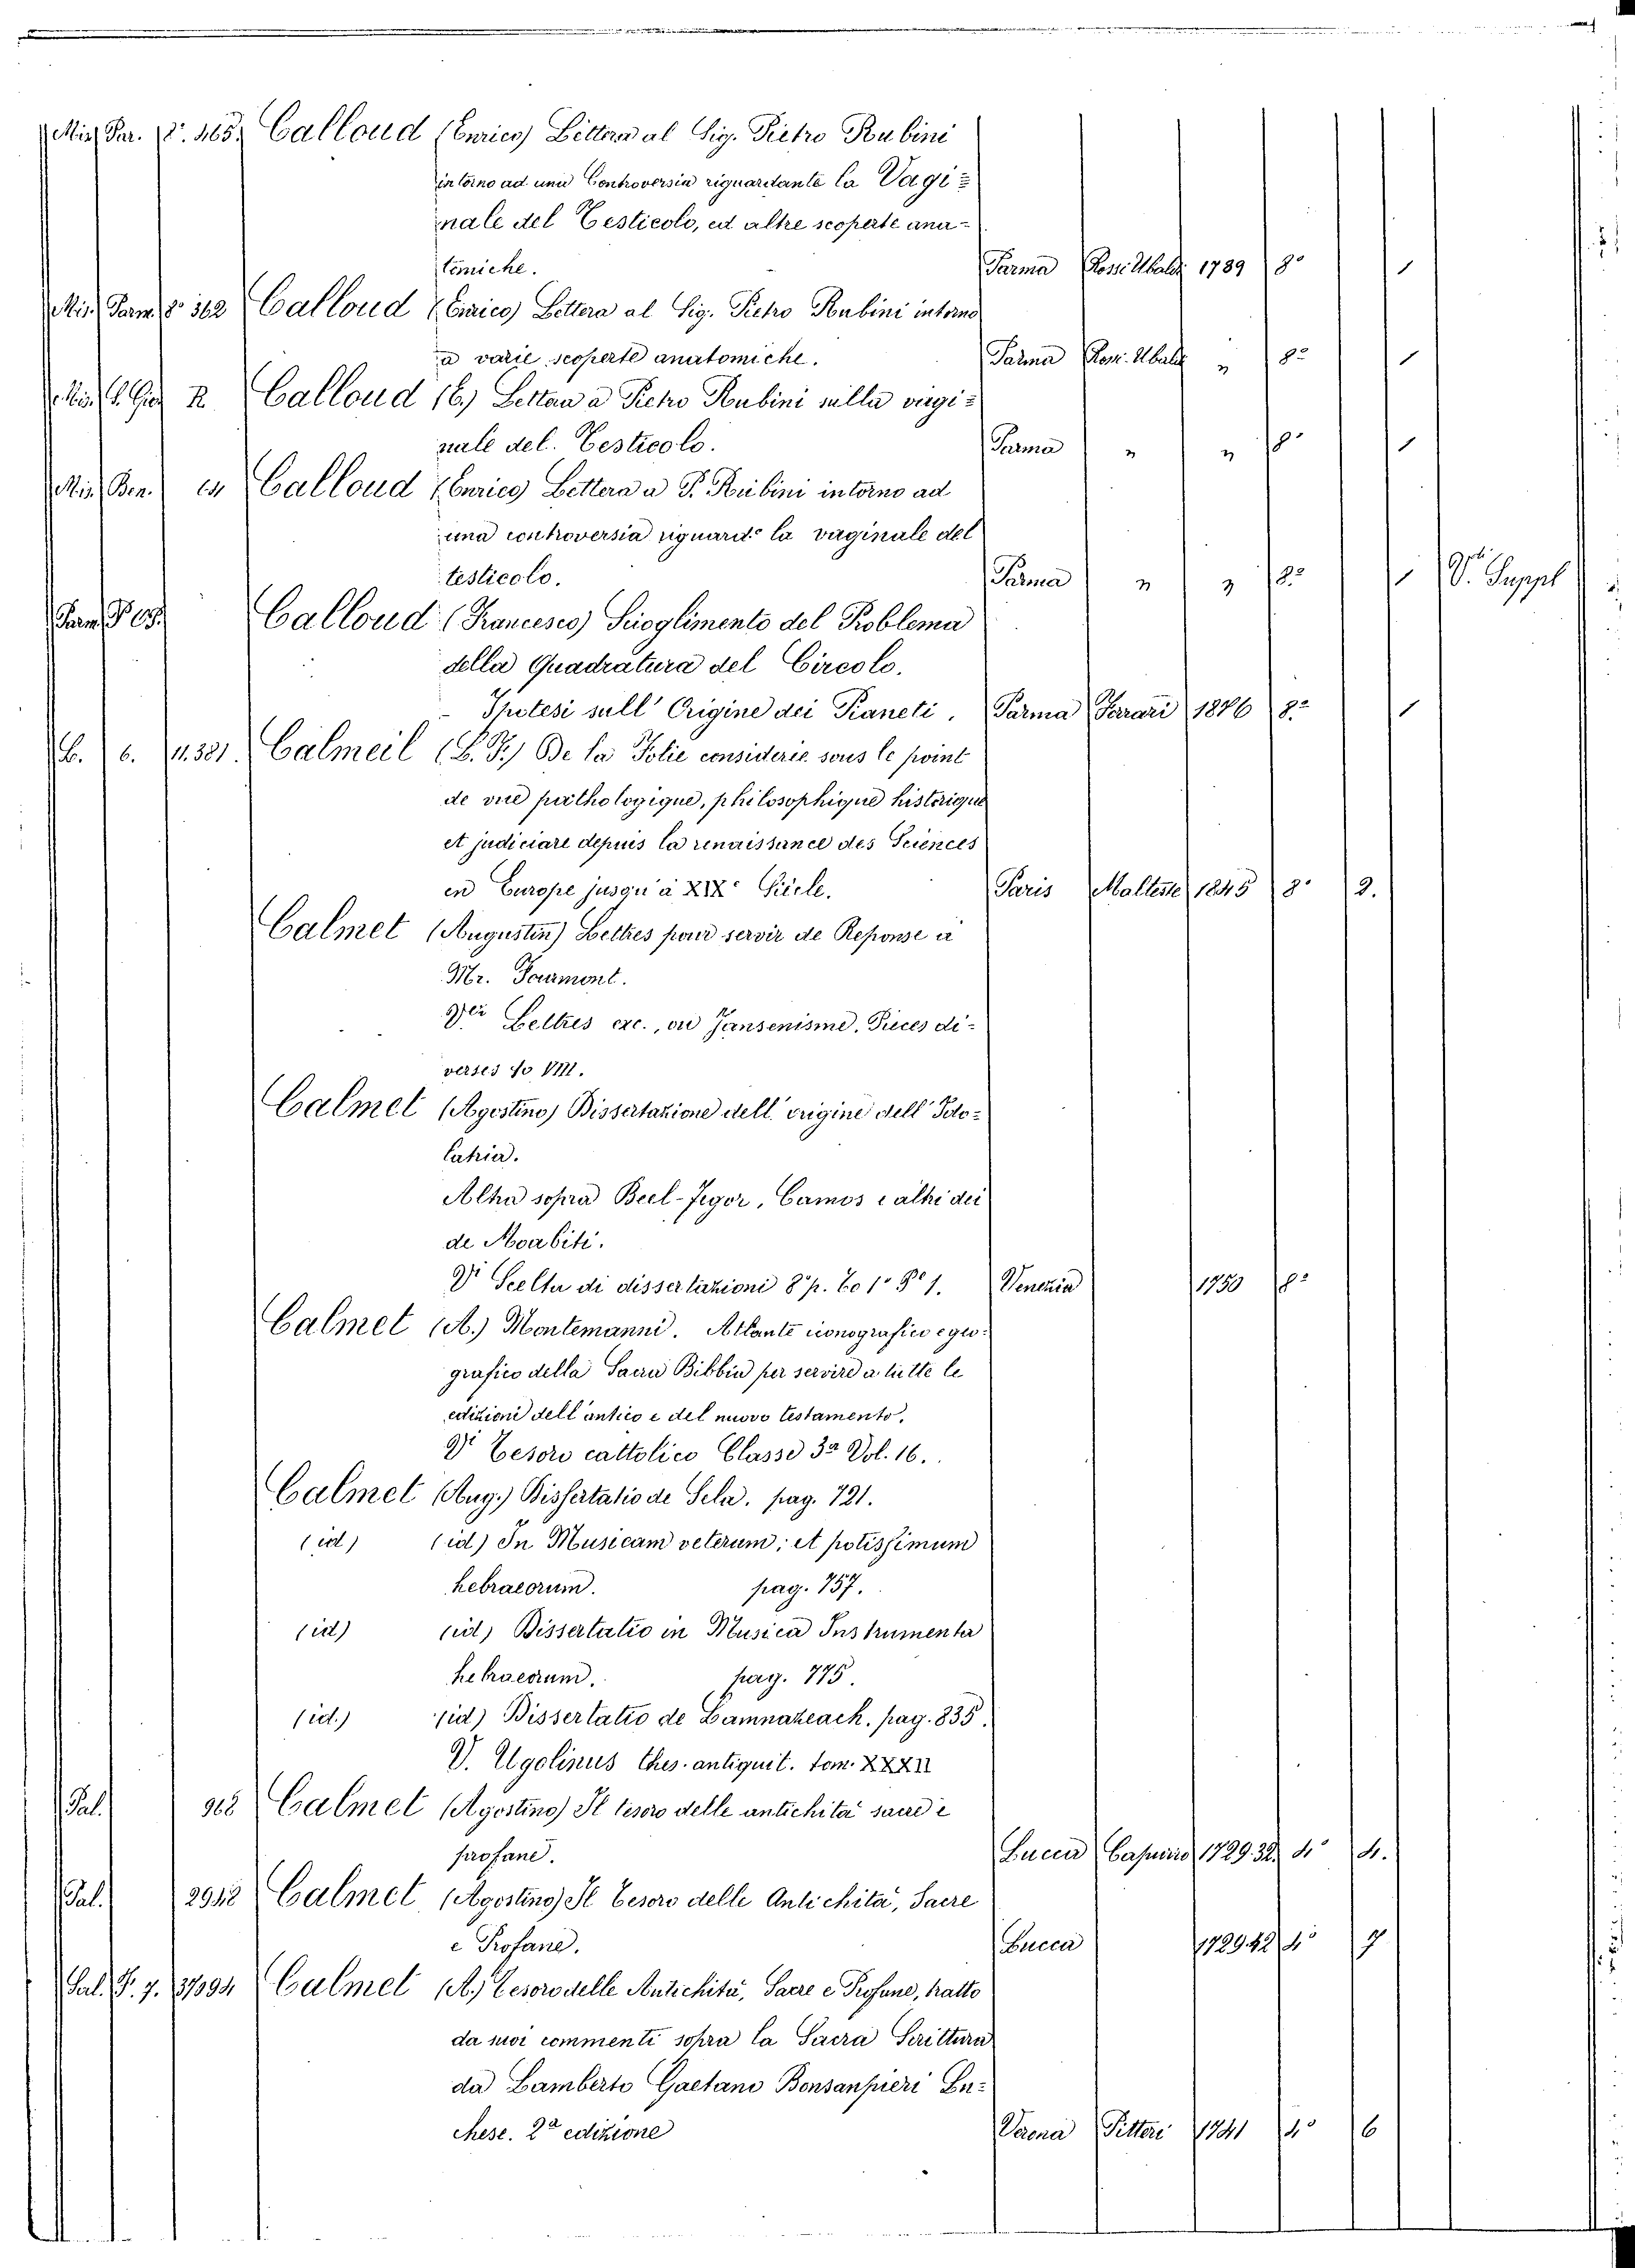 Mis. Par. 8º. 465. Calloud (Enrico) Lettera al Sig. Pietro Rubini
intorno ad una Controversia riguardante la Vagi=
nale del Testicolo, ed altre scoperte ana=
tomiche. Parma Rossi Ubaldi 1789 8º 1
Mis. Parm. 8º 362 Calloud (Enrico) Lettera al Sig. Pietro Rubini intorno
a varie scoperte anatomiche. Parma Rossi Ubaldi " 8º 1
Calloud (E.) Lettera a Pietro Rubini sulla vagi=
nale del Testicolo. Parma " " 8º 1
Mis. Ben. Calloud (Enrico) Lettera a P. Rubini intorno ad
una controversia riguard.e la vaginale del
testicolo. Parma " " 8º 1 V. Suppl
Calloud (Francesco) Scioglimento del Problema
della Quadratura del Circolo.
- Ipotesi sull' Origine dei Pianeti. Parma Ferrari 1876 8º 1
6. 11.381. Calmeil (L. F.) De la Folie considerée sous le point
de vue pathologique, philosophique historique
et judiciare depuis la renaissance des Sciences
en Europe jusqu'à XIXe Siècle. Paris Malteste 1845 8º 2.
Calmet (Augustin) Lettres pour servir de Reponse a
Mr. Fourmont.
Vdi Lettres ecc., ou Jansenisme. Pieces di=
verses to VIII.
Calmet (Agostino) Dissertazione dell' origine dell' Ido=
latria.
Altra sopra Beel-Fegor, Camos e altri dei
de Moabiti.
Vi Scelta di dissertazioni 8º p. To 1º Pe 1. Venezia 1750 8º
Calmet (A.) Montemanni. Atlante iconografico e geo=
grafico della Sacra Bibbia per servire a tutte le
edizioni dell'antico e del nuovo testamento.
Vi Tesoro cattolico Classe 3a Vol. 16.
Calmet (Aug.) Dissertatio de Sela. pag. 721.
(id) (id) In Musicam veterum; et potissimum
hebraeorum. pag. 757.
(id) (id) Dissertatio in Musica Instrumenta
hebraeorum. pag. 775.
(id.) (id) Dissertatio de Lamnazeach. pag. 835.
V. Ugolinus Thes. antiquit. tom. XXXII
Pal. 968 Calmet (Agostino) Il tesoro delle antichità sacre e
profane. Lucca Capurro 1729.32 4º 4.
Pal. 2942 Calmet (Agostino) Il Tesoro delle Antichità, Sacre
e Profane. Lucca 1729.42 4º 7
Sal. F. 7. 37094 Calmet (A.) Tesoro delle Antichità, Sacre e Profane, tratto
da suoi commenti sopra la Sacra Scrittura
da Lamberto Gaetano Bonsanpieri Lu=
chese. 2a edizione Verona Pitteri 1741 4º 6